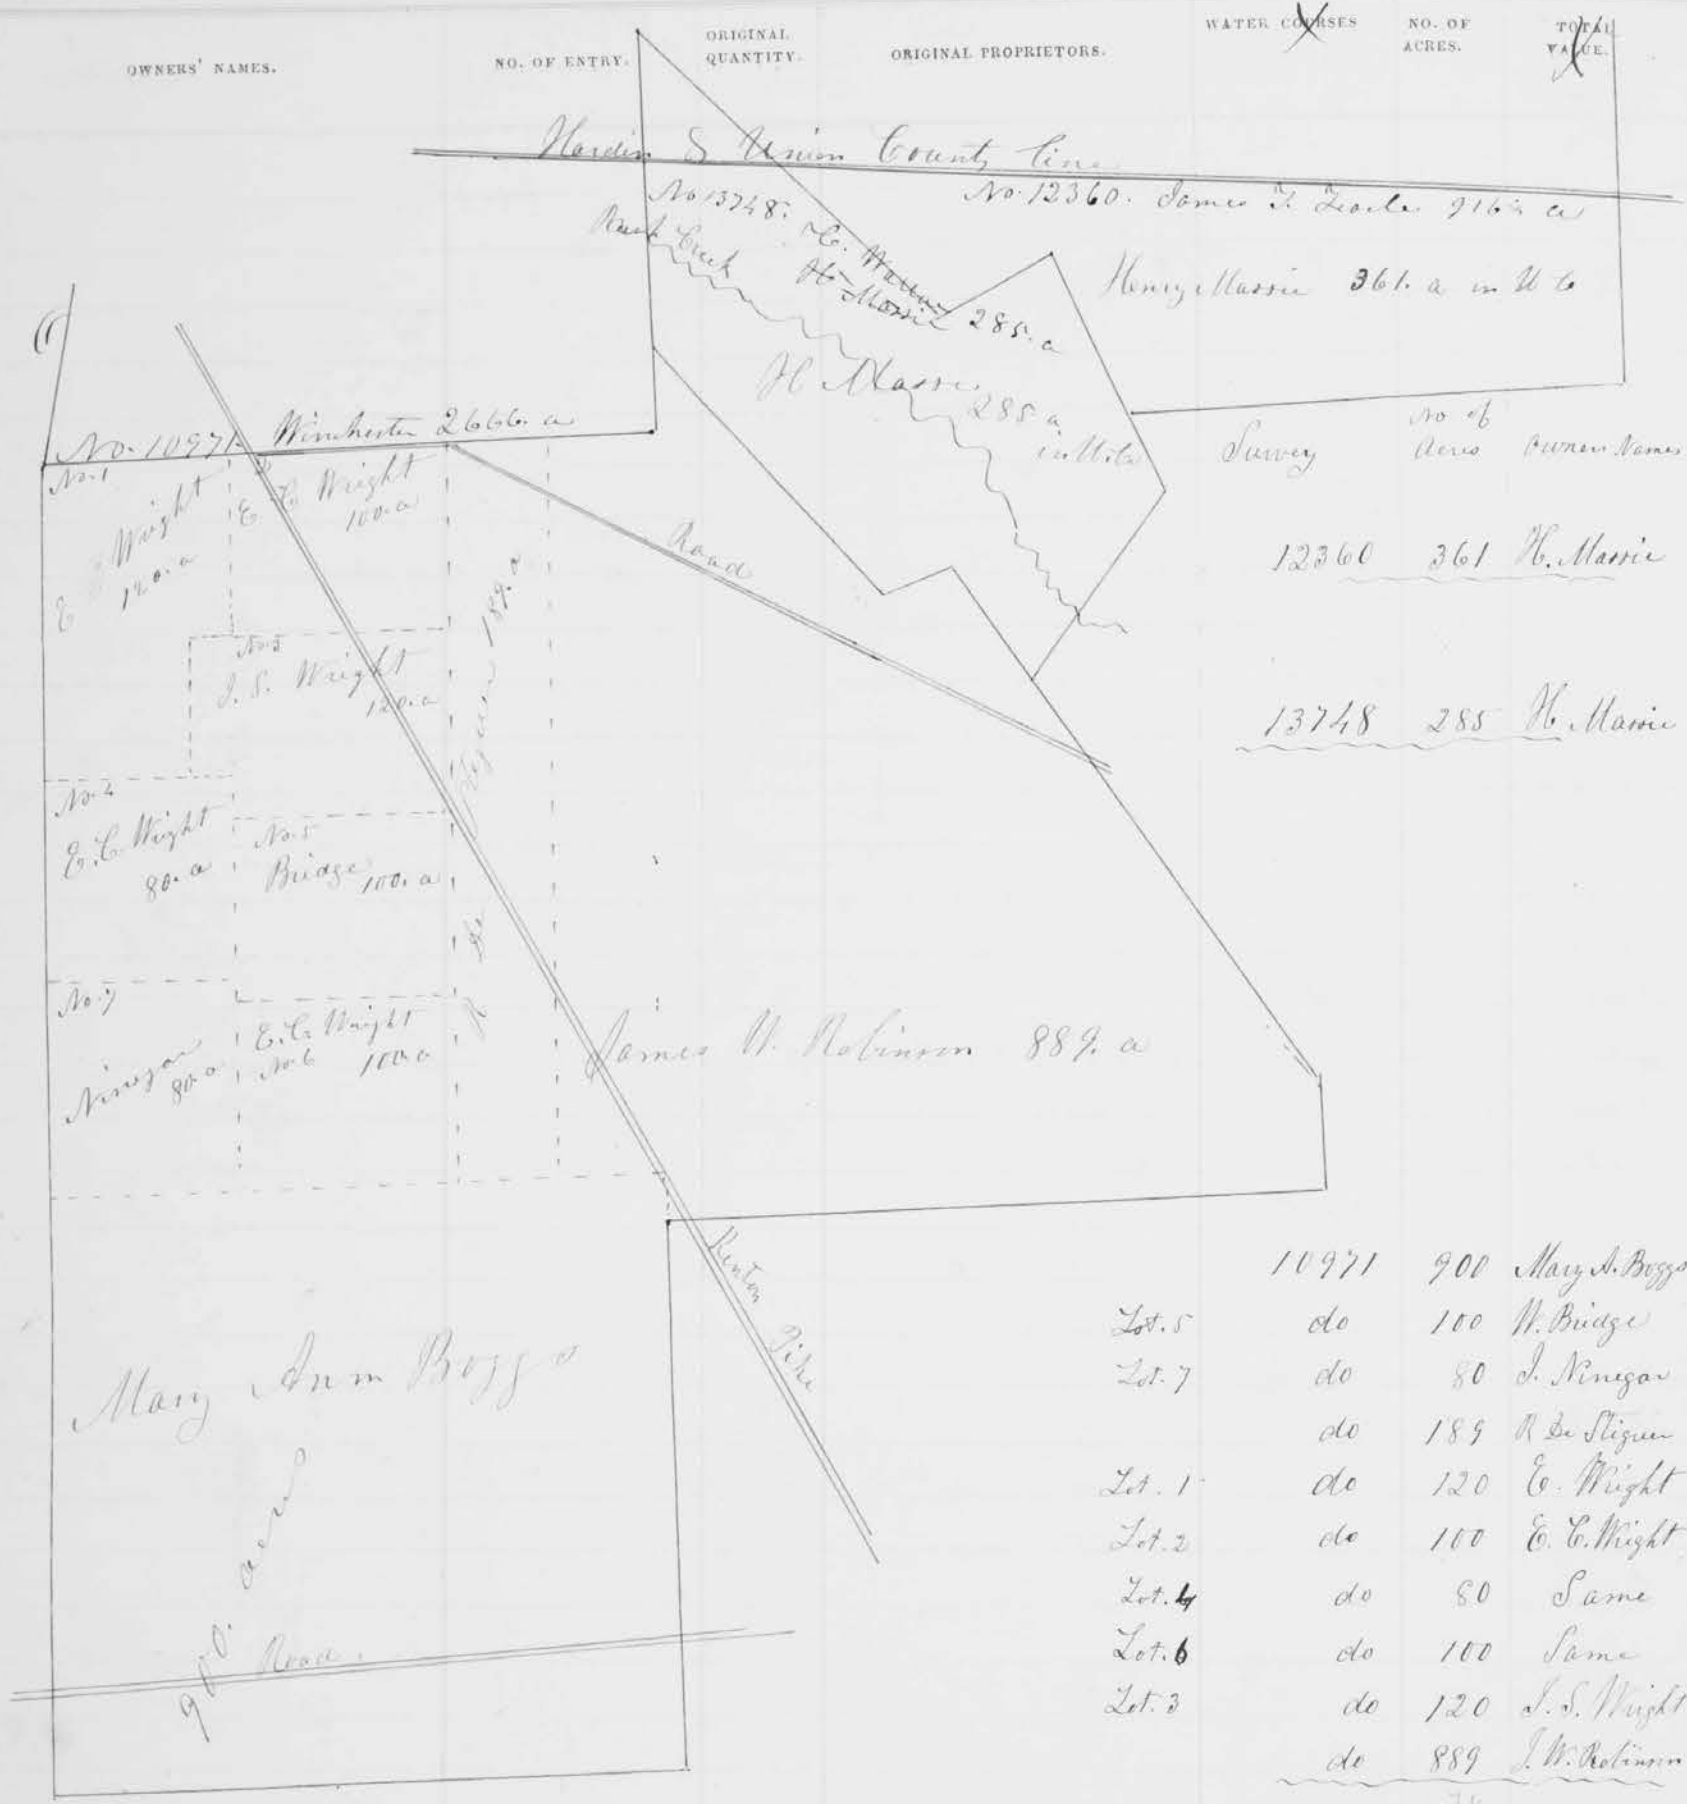 OWNERS' NAMES. NO. OF ENTRY. ORIGINAL QUANTITY. ORIGINAL PROPRIETORS. WATER COURSES NO. OF ACRES. TOTAL VALUE.
Hardin & Union County line
No 13748. No. 12360. James T. 916 a
Creek
H. Massie 285. a
Henry Massie 361. a in U Co
H Massie
285 a
in U. Co
No. 10971. Winchester 2666. a
No. 1
E Wright
120. a
E C Wright
100. a
Road
No. 3
J. S. Wright
120. a
R De 189. a
No. 2
E. C. Wright
80. a
No. 5
Bridge 100. a
No. 7
Ninegar
80 a
E. C. Wright
No. 6 100 a
James W. Robinson 889. a
Kenton Pike
Mary Ann Boggs
900. acres
Road.
Survey No of Acres Owners Names
12360 361 H. Massie
13748 285 H. Massie
10971 900 Mary A. Boggs
Lot. 5 do 100 W. Bridge
Lot. 7 do 80 J. Ninegar
do 189 R De Stiguer
Lot. 1 do 120 E. Wright
Lot. 2 do 100 E. C. Wright
Lot. 4 do 80 Same
Lot. 6 do 100 Same
Lot. 3 do 120 J. S. Wright
do 889 J. W. Robinson